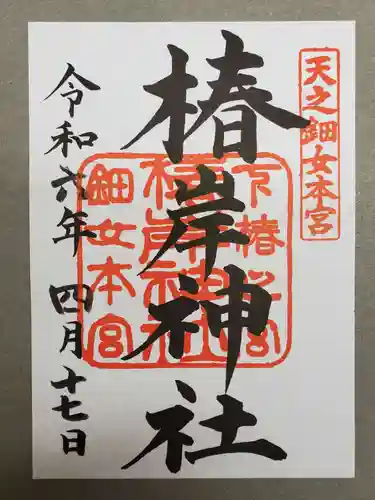 天之鈿女本宮
椿岸神社
令和六年 四月十七日
鈿女本宮